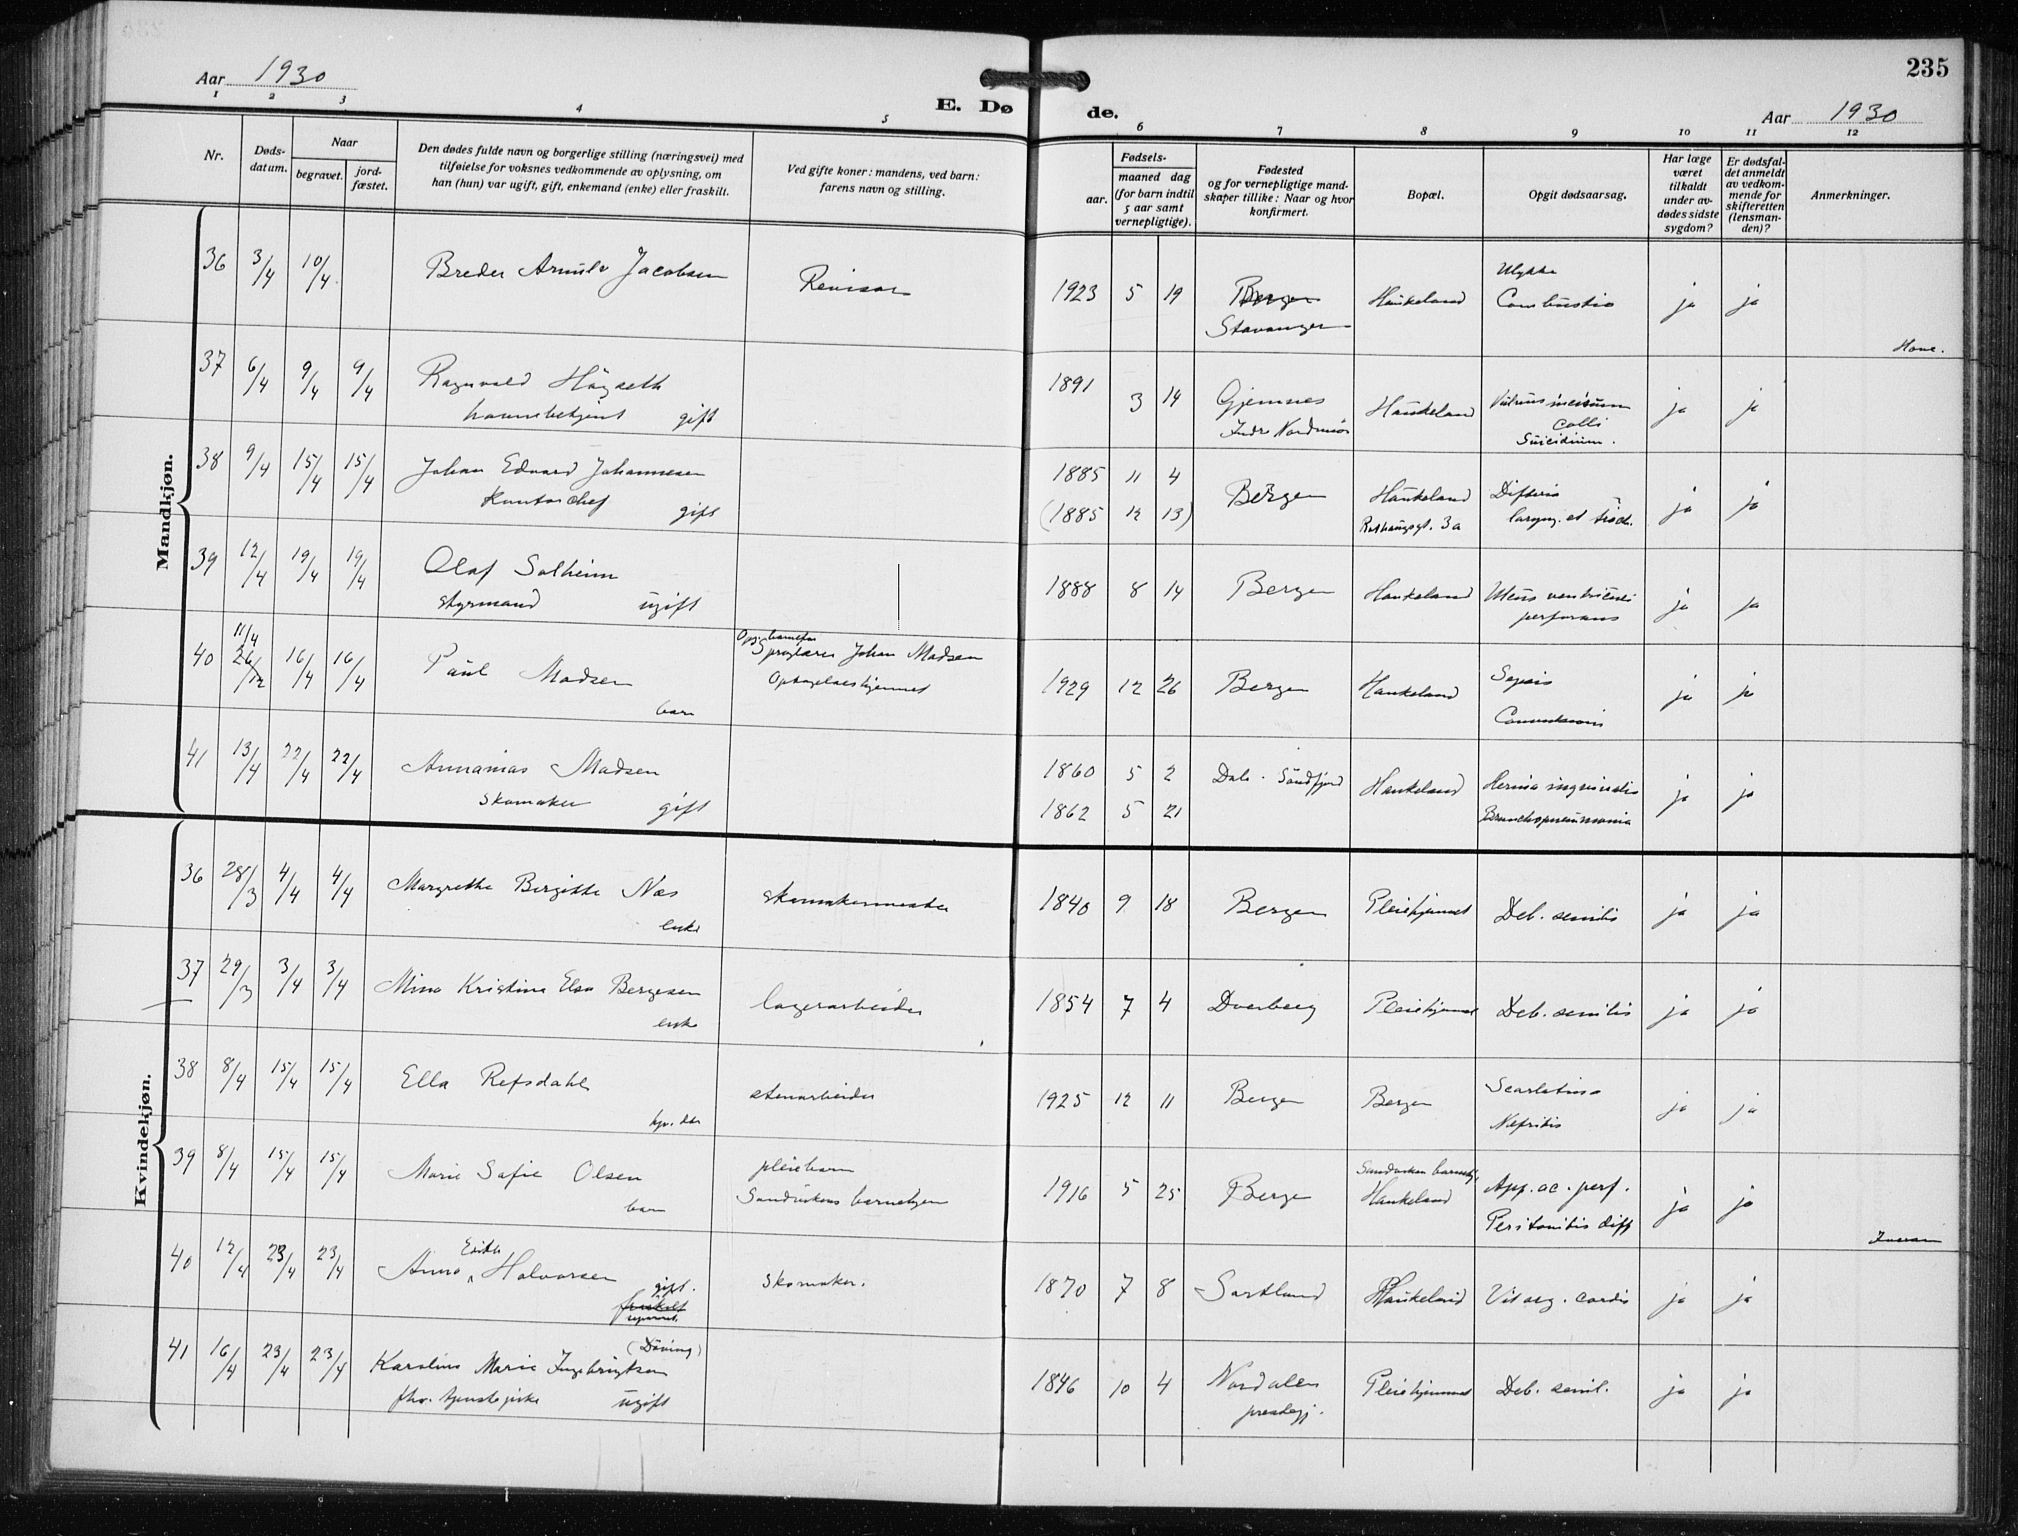 235
Aar 1930
E. Døde.
Aar 1930
1 2 3 4 5 6 7 8 9 10 11 12
Nr.
Døds-
datum.
Naar
begravet.
jord-
fæstet.
Den dødes fulde navn og borgerlige stilling (næringsvei) med
tilføielse for voksnes vedkommende av oplysning, om
han (hun) var ugift, gift, enkemand (enke) eller fraskilt.
Ved gifte koner: mandens, ved barn:
farens navn og stilling.
Fødsels-
aar.
maaned dag
(for barn indtil
5 aar samt
vernepligtige).
Fødested
og for vernepligtige mand-
skaper tillike: Naar og hvor
konfirmert.
Bopæl.
Opgit dødsaarsag.
Har læge
været
tilkaldt
under av-
dødes sidste
sygdom?
Er dødsfal-
det anmeldt
av vedkom-
mende for
skifteretten
(lensman-
den)?
Anmerkninger.
Mandkjøn.
36 3/4 10/4 Breder Arnulv Jacobsen Revisor 1923 5 19 Bergen Haukeland Ulykke ja ja
Stavanger Combustio
37 6/4 9/4 9/4 Ragnvald Högseth 1891 3 14 Gjemnes Haukeland Vulnus incisum ja ja
havnebetjent gift Indre Nordmör colli
Suicidium.
38 9/4 15/4 15/4 Johan Edvard Johannesen 1885 11 4 Bergen Haukeland Difteria ja ja
Kontorchef gift (1885 12 13) 3a laryng. et trach.
39 12/4 19/4 19/4 Olaf Solheim 1888 8 14 Bergen Haukeland Ulcus ventriculi ja ja
styrmand ugift perforans
40 11/4 16/4 16/4 Paul Madsen Opg. barnefar Johan Madsen 1929 12 26 Bergen Haukeland Sepsis ja ja
26/12 barn
41 13/4 22/4 22/4 Annanias Madsen 1860 5 2 Dale. Söndfjord Haukeland Hernia inguinalis ja ja
skomaker gift 1862 5 21 Bronchopneumonia
Kvindekjøn.
36 28/3 4/4 4/4 Margrethe Bergitte Næs skomakermester 1840 9 18 Bergen Pleiehjemmet Deb. senilis ja ja
enke
37 29/3 3/4 3/4 Mina Kristine Elsa Bergesen lagerarbeider 1854 7 4 Dverberg Pleiehjemmet Deb. senilis ja ja
enke
38 8/4 15/4 15/4 Ella Refsdahl stenarbeider 1925 12 11 Bergen Bergen Scarlatina ja ja
Nefritis
39 8/4 15/4 15/4 Marie Sofie Olsen pleiebarn 1916 5 25 Bergen Sandvikens barnehj. App. ac. perf. ja ja
barn Sandvikens barnehjem Haukeland Peritonitis diff
40 12/4 23/4 23/4 Anna Halvorsen gift. skomaker. 1870 7 8 Sortland Haukeland Vit. org. cordis ja ja
fraskilt
separert
41 16/4 23/4 23/4 Karoline Marie Ingebrigtsen (Döving) 1846 10 4 Nordalen Pleiehjemmet Deb. senil. ja ja
fhv. tjenestepike ugift prestegj.